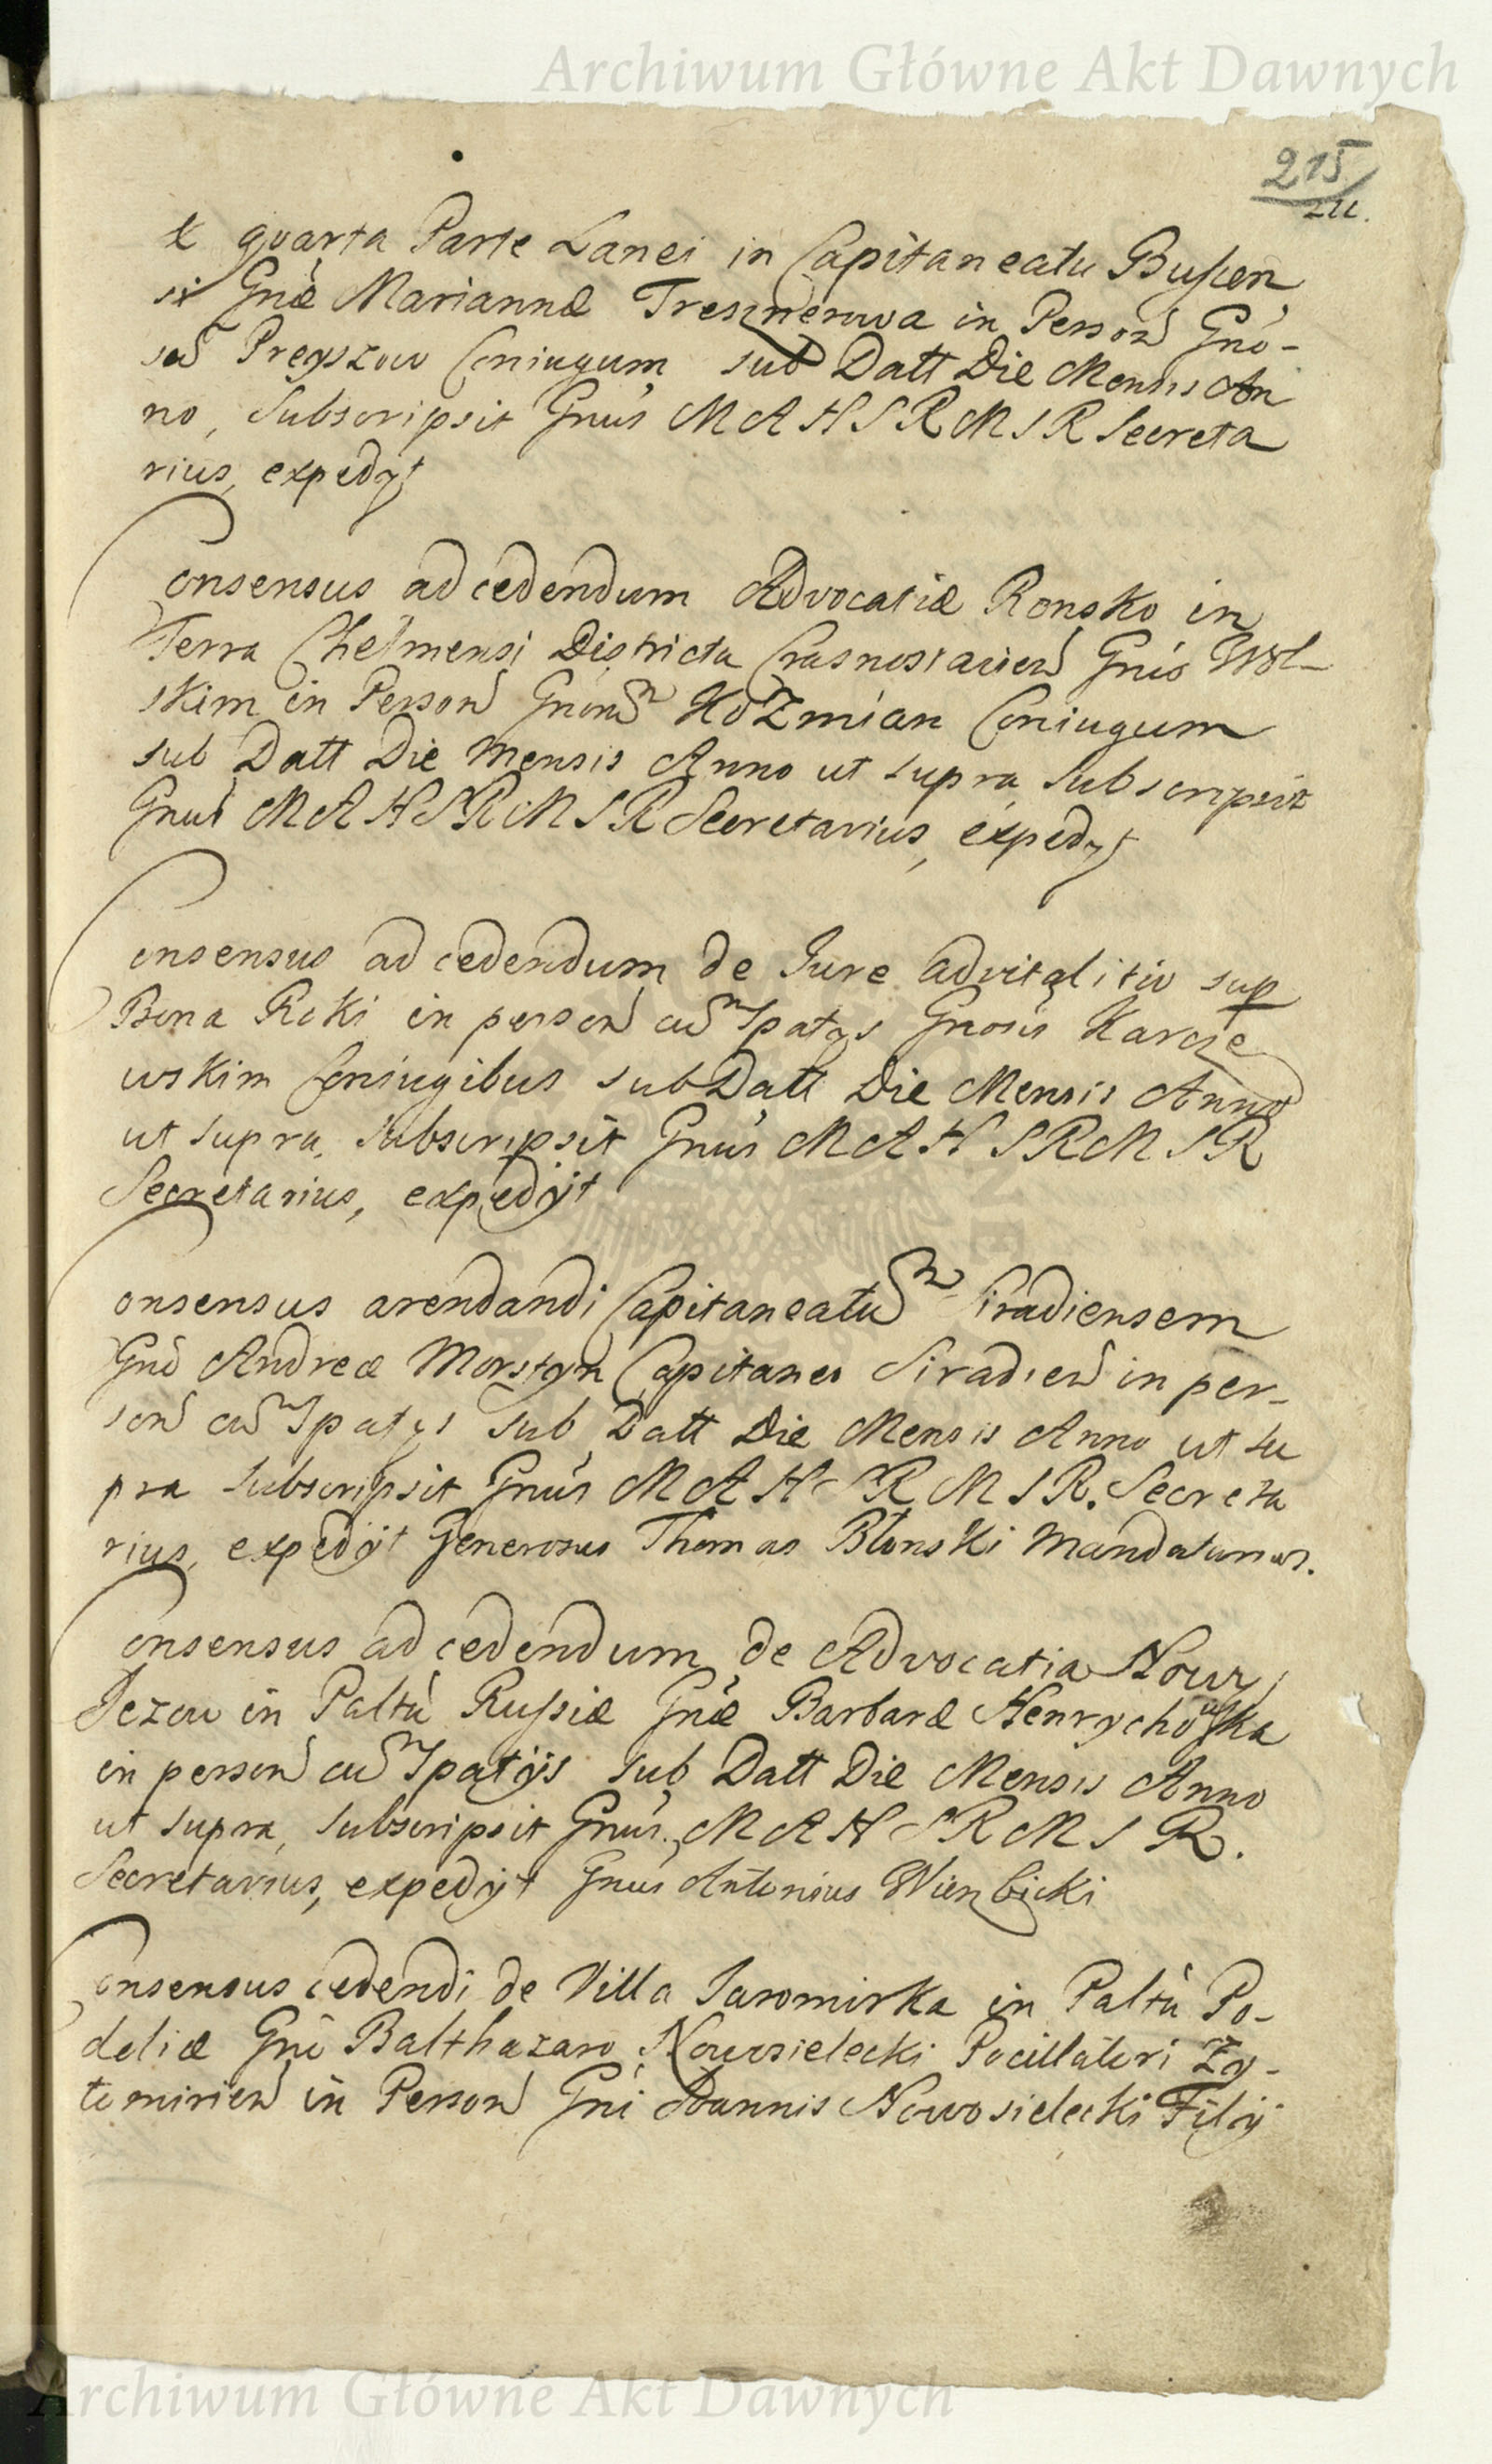 Archiwum Główne Akt Dawnych
215
211.
& quarta Parte Lanei in Capitaneatu Buscen
si Gnæ Mariannæ Tresznerowa in Person Gno-
Preyszow Coniugum sub Datt Die Mensis An
no, Subscripsit Gnus M A H S R M S R Secreta
rius, expedyt
Consensus ad cedendum Advocatiæ Ronsko in
Terra Chelmensi Districtu Crasnostavien Gnis Wol-
skim in Person Gnon Kozmian Coniugum
sub Datt Die Mensis Anno ut supra Subscripsit
Gnus M A H S R M S R Secretarius, expedyt
Consensus ad cedendum de Jure advitalitio sup
Bona Roki in person cu Spatys Gnosis Karcze
wskim Coniugibus sub Datt Die Mensis Anno
ut supra, Subscripsit Gnus M A H S R M S R
Secretarius, expedÿt
Consensus arendandi Capitaneatu Siradiensem
Gno Andreæ Morstyn Capitaneo Siradien in per-
son cu Spatys sub Datt Die Mensis Anno ut su
pra Subscripsit Gnus M A H S R M S R. Secreta
rius, expedÿt Generosus Thomas Blonski Mandatarius.
Consensus ad cedendum de Advocatia Nowy
Jezow in Paltu Russiæ Gnæ Barbaræ Henrychowska
in person cu Spatÿs sub Datt Die Mensis Anno
ut supra, Subscripsit Gnus. M A H S R M S R.
Secretarius, expedÿt Gnus Antonius Wierzbicki
Consensus cedendi de Villa Jaromirka in Paltu Po-
doliæ Gno Balthazaro Nowosielecki Pocillatori Zy-
tomirien in Person Gni Joannis Nowosielecki Filÿ
Archiwum Główne Akt Dawnych